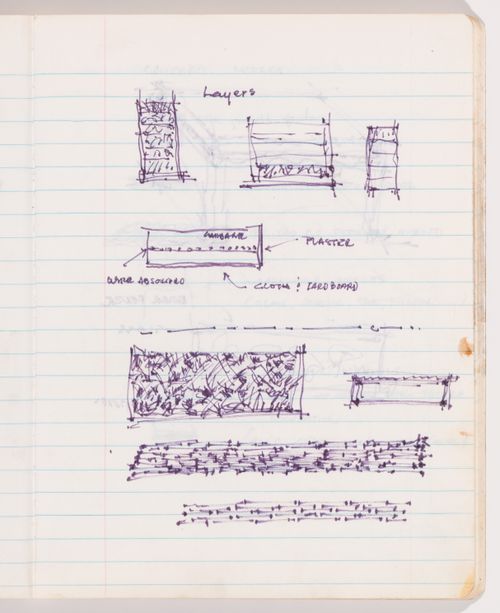 Layers
GARBAGE
PLASTER
WATER ABSORBED
CLOTH & CARDBOARD